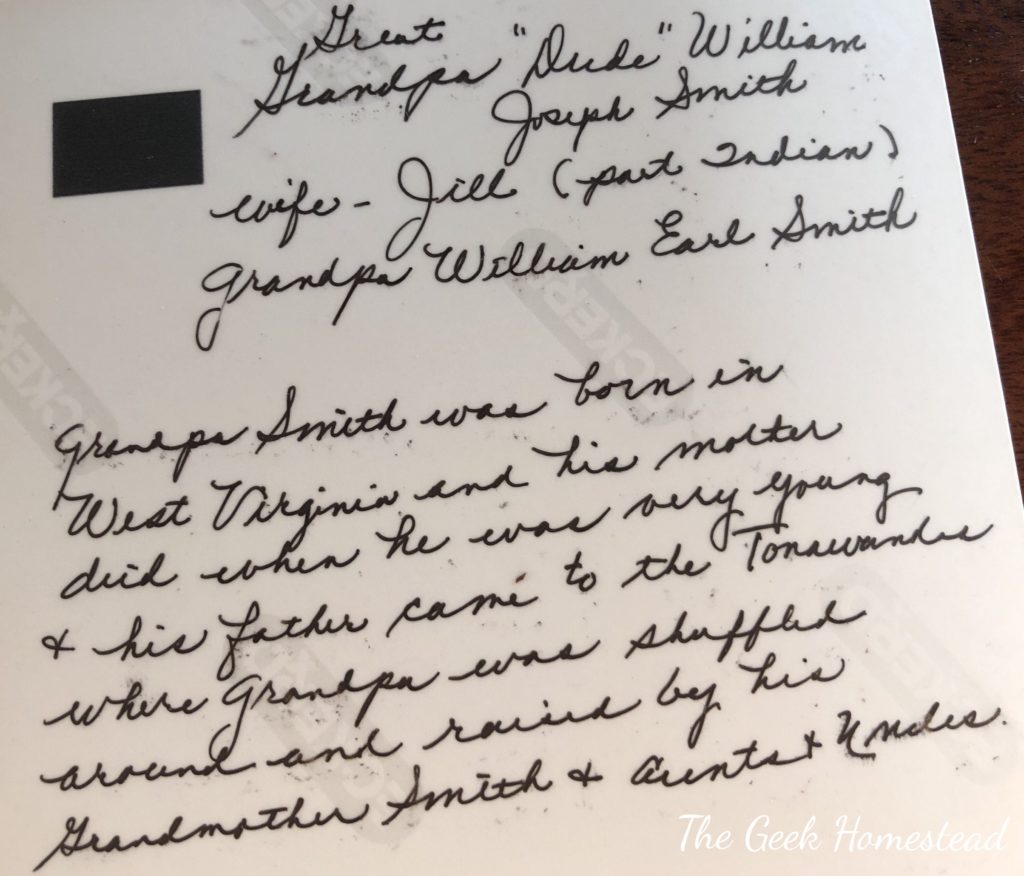 Great
Grandpa "Dude" William
Joseph Smith
wife - Jill (part Indian)
Grandpa William Earl Smith
Grandpa Smith was born in
West Virginia and his mother
died when he was very young
& his father came to the Tonawandas
where Grandpa was shuffled
around and raised by his
Grandmother Smith & Aunts & Uncles.
The Geek Homestead